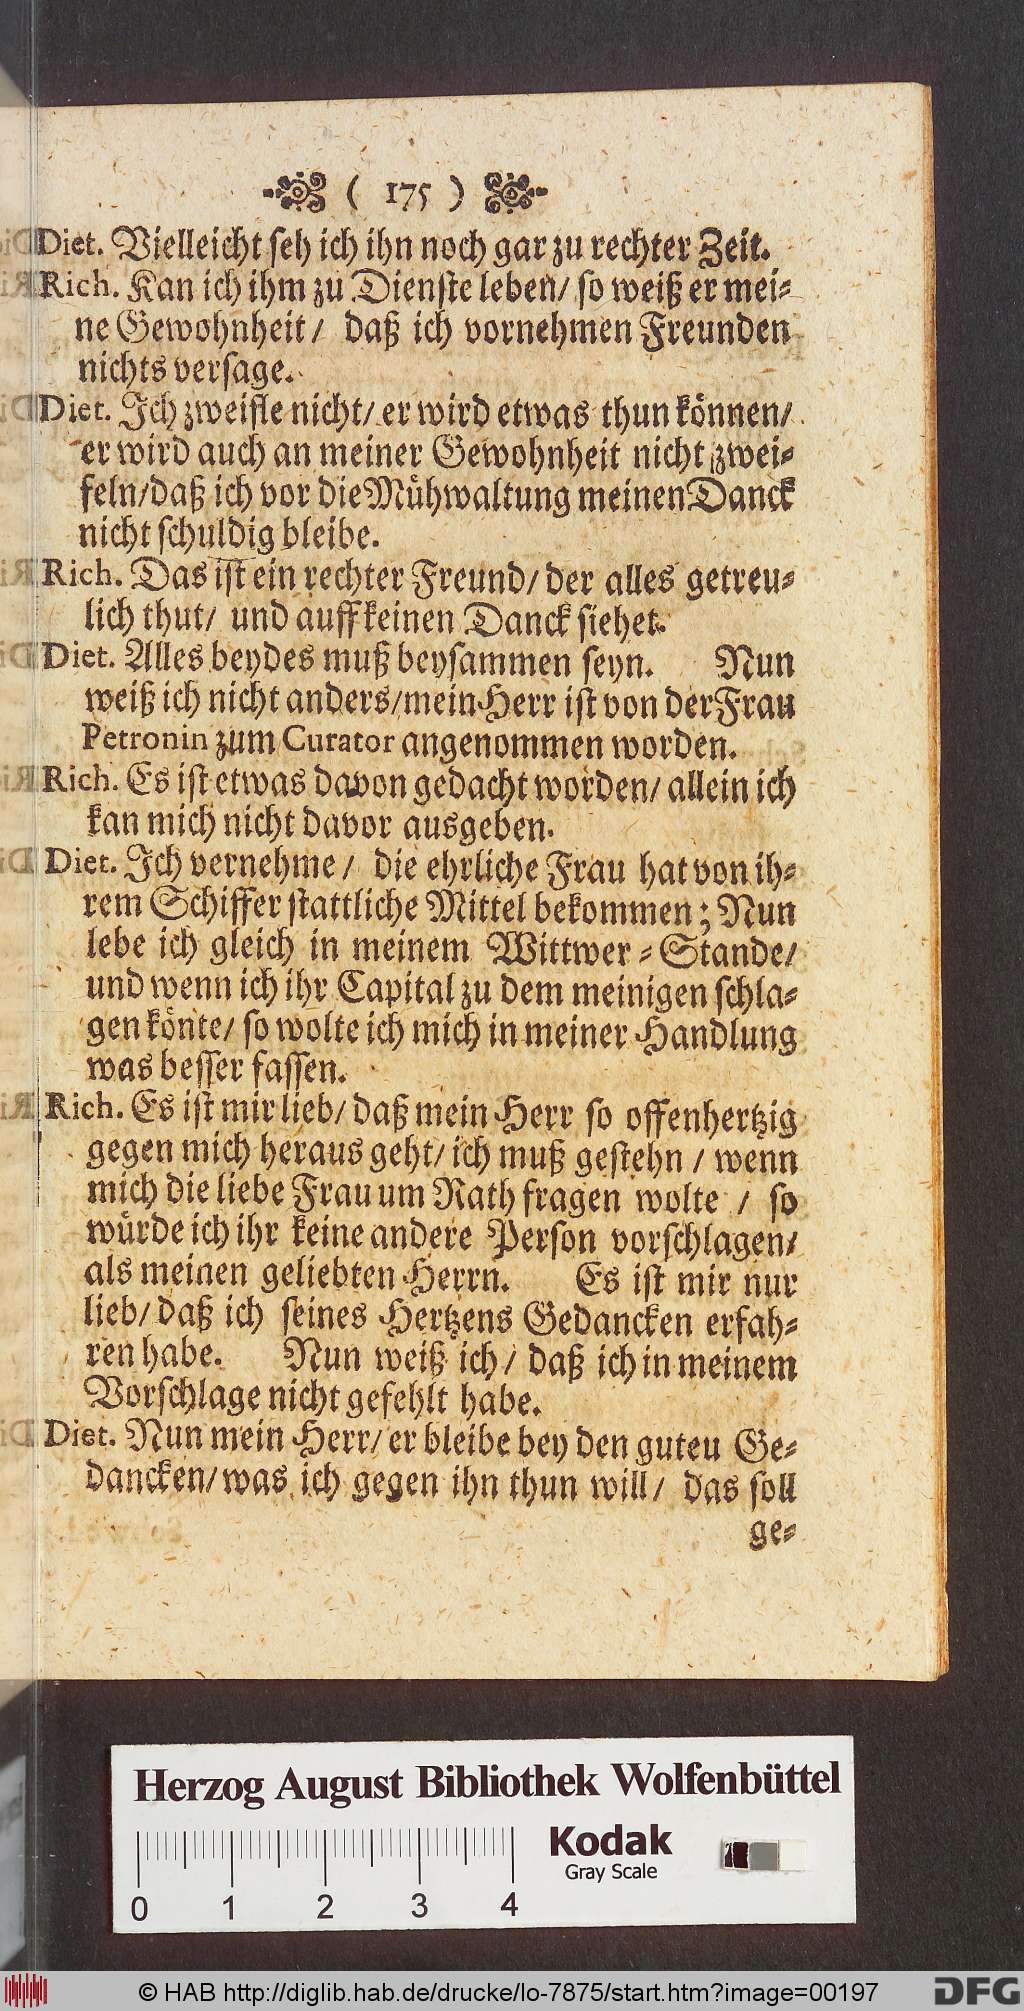 ( 175 )
Diet. Vielleicht seh ich ihn noch gar zu rechter Zeit.
Rich. Kan ich ihm zu Dienste leben/ so weiß er mei-
ne Gewohnheit/ daß ich vornehmen Freunden
nichts versage.
Diet. Ich zweifle nicht/ er wird etwas thun können/
er wird auch an meiner Gewohnheit nicht zwei-
feln/daß ich vor die Mühwaltung meinen Danck
nicht schuldig bleibe.
Rich. Das ist ein rechter Freund/ der alles getreu-
lich thut/ und auff keinen Danck siehet.
Diet. Alles beydes muß beysammen seyn. Nun
weiß ich nicht anders/mein Herr ist von der Frau
Petronin zum Curator angenommen worden.
Rich. Es ist etwas davon gedacht worden/ allein ich
kan mich nicht davor ausgeben.
Diet. Ich vernehme/ die ehrliche Frau hat von ih-
rem Schiffer stattliche Mittel bekommen; Nun
lebe ich gleich in meinem Wittwer-Stande/
und wenn ich ihr Capital zu dem meinigen schla-
gen könte/ so wolte ich mich in meiner Handlung
was besser fassen.
Rich. Es ist mir lieb/ daß mein Herr so offenhertzig
gegen mich heraus geht/ ich muß gestehn/ wenn
mich die liebe Frau um Rath fragen wolte / so
würde ich ihr keine andere Person vorschlagen/
als meinen geliebten Herrn. Es ist mir nur
lieb/ daß ich seines Hertzens Gedancken erfah-
ren habe. Nun weiß ich/ daß ich in meinem
Vorschlage nicht gefehlt habe.
Diet. Nun mein Herr/ er bleibe bey den guteu Ge-
dancken/ was ich gegen ihn thun will/ das soll
ge-
Herzog August Bibliothek Wolfenbüttel
Kodak
Gray Scale
0 1 2 3 4
© HAB http://diglib.hab.de/drucke/lo-7875/start.htm?image=00197
DFG